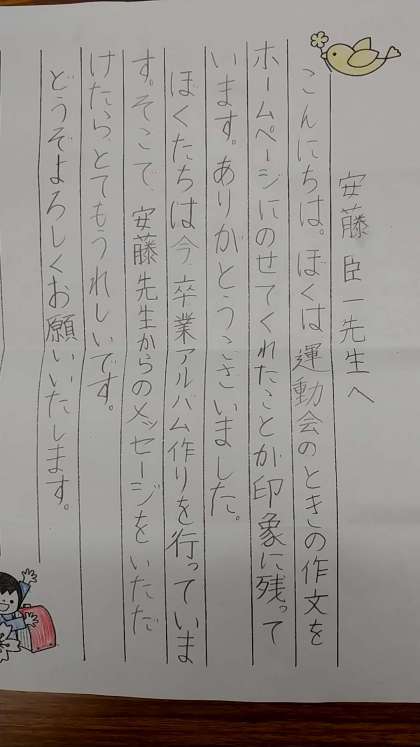 安藤臣一先生へ
こんにちは。ぼくは運動会のときの作文を
ホームページにのせてくれたことが印象に残って
います。ありがとうございました。
ぼくたちは今、卒業アルバム作りを行っていま
す。そこで、安藤先生からのメッセージをいただ
けたら、とてもうれしいです。
どうぞよろしくお願いいたします。